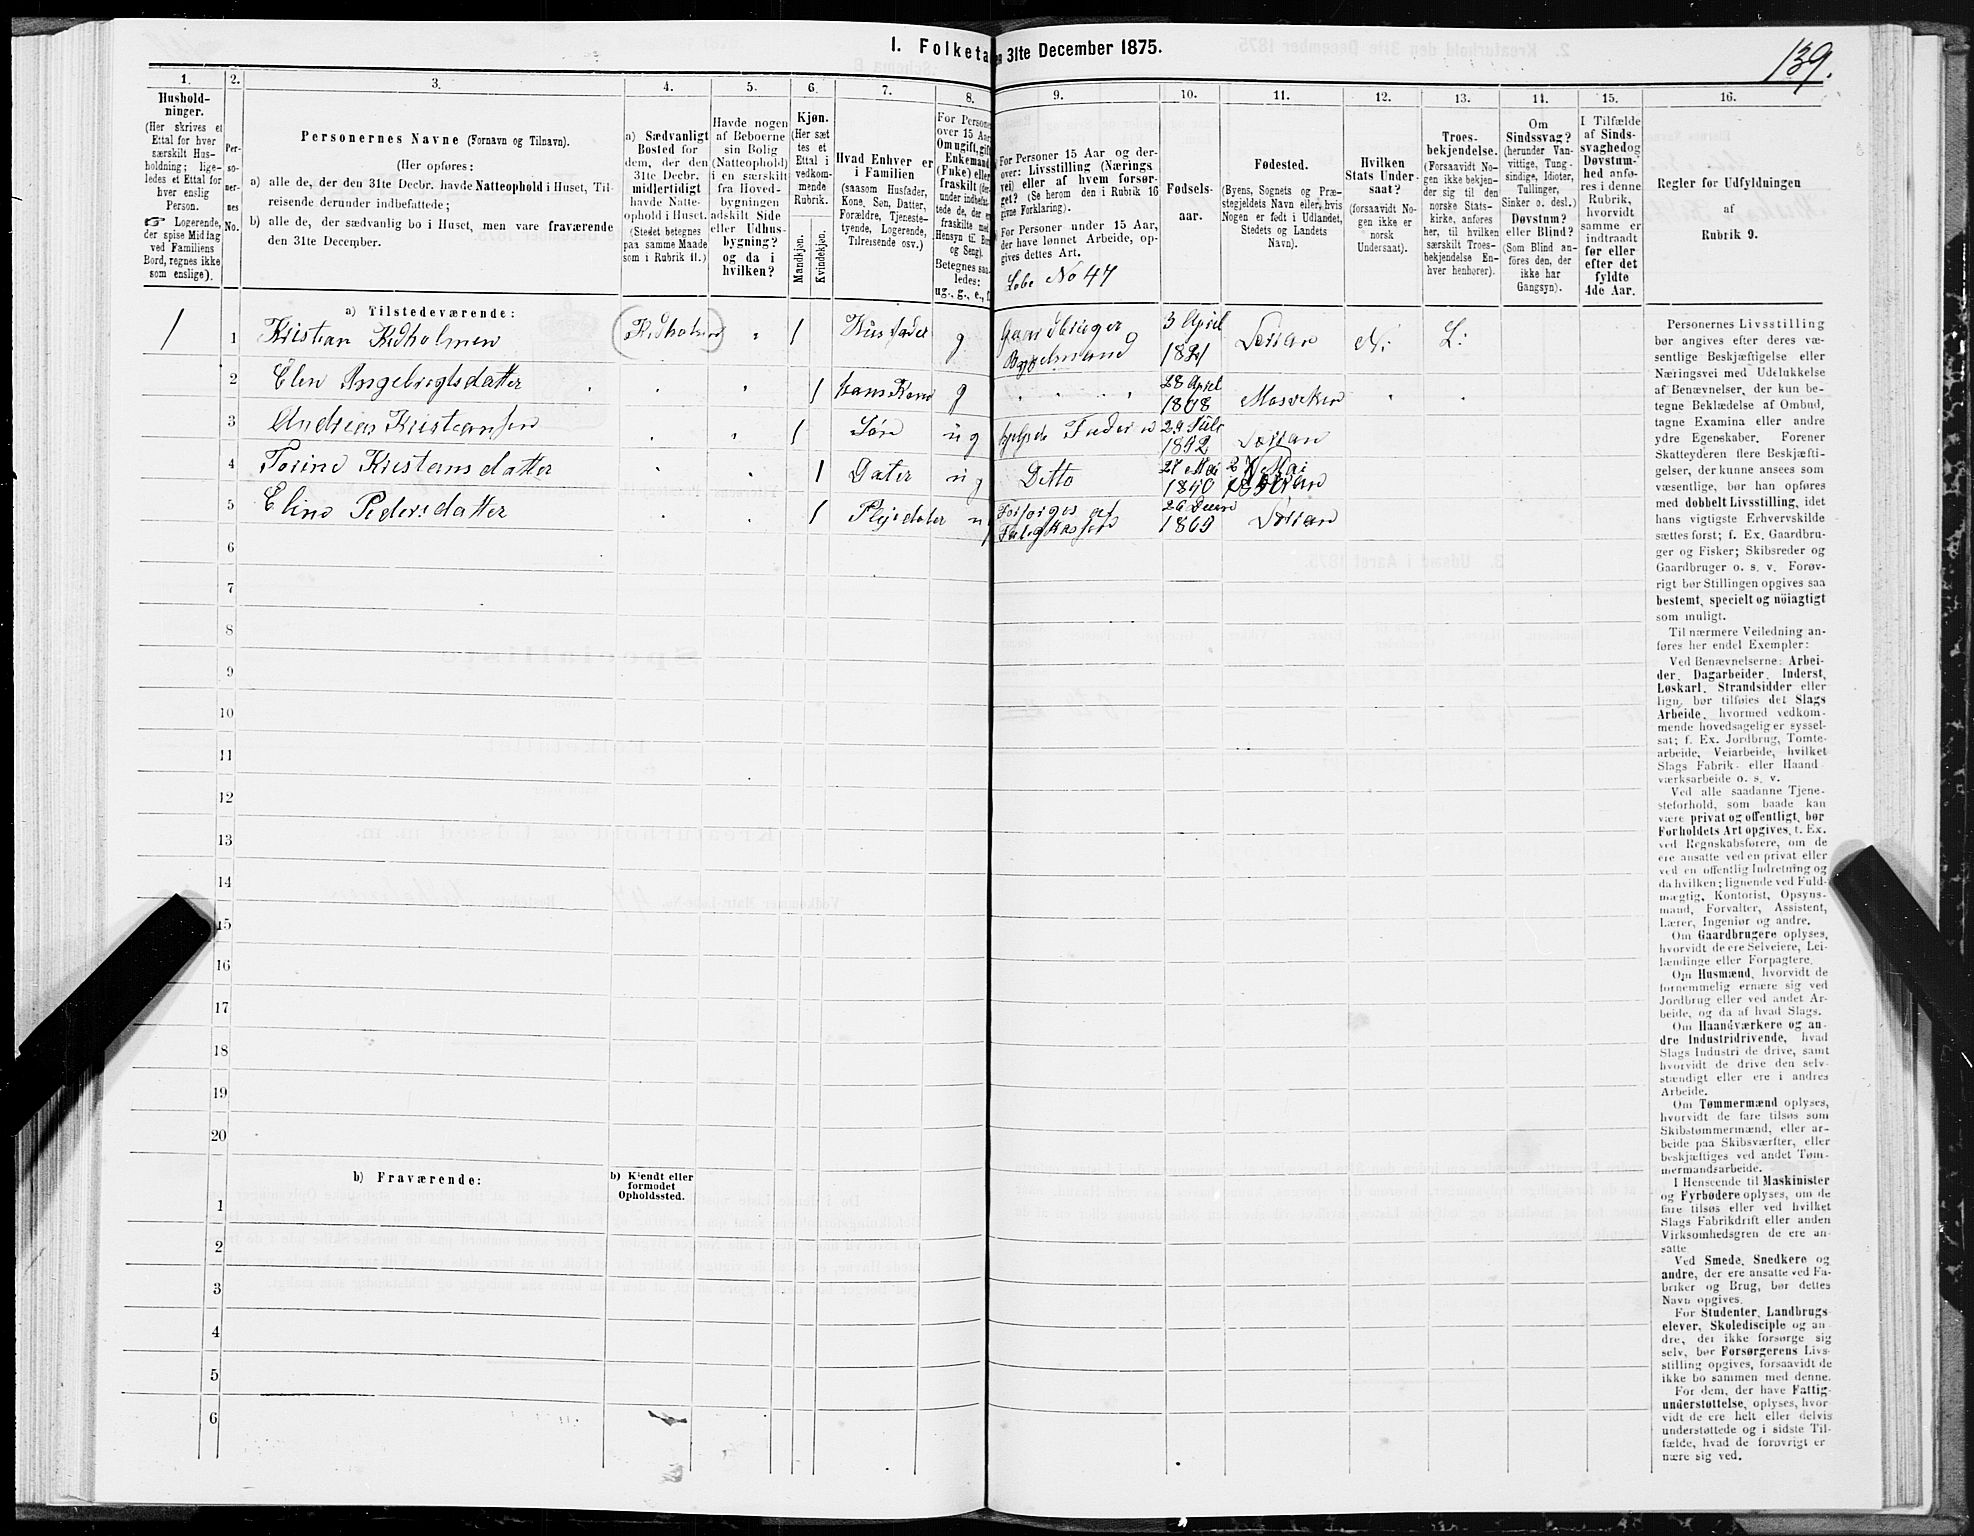 139.
I. Folketa en 31te December 1875.
1. 2. 3. 4. 5. 6. 7. 8. 9. 10. 11. 12. 13. 14. 15. 16.
Hushold-
ninger.
(Her skrives et
Ettal for hver
særskilt Hus-
holdning; lige-
ledes et Ettal for
hver enslig
Person.
☞ Logerende,
der spise Middag
ved Familiens
Bord, regnes ikke
som enslige).
Per-
so-
ner-
nes
No.
Personernes Navne (Fornavn og Tilnavn).
(Her opføres:
a) alle de, der den 31te Decbr. havde Natteophold i Huset, Til-
reisende derunder indbefattede;
b) alle de, der sædvanlig bo i Huset, men vare fraværende
den 31te December.
a) Sædvanligt
Bosted for
dem, der den
31te Decbr.
midlertidigt
havde Natte-
ophold i Huset.
(Stedet betegnes
paa samme Maade
som i Rubrik 11.)
Havde nogen
af Beboerne
sin Bolig
(Natteophold)
i en særskilt
fra Hoved-
bygningen
adskilt Side
eller Udhus-
bygning?
og da i
hvilken?
Kjøn.
(Her sæt
tes et
Ettal i
vedkom-
mende
Rubrik.
Mandkjøn.
Kvindekjøn.
Hvad Enhver er
i Familien
(saasom Husfader,
Kone, Søn, Datter,
Forældre, Tjeneste-
tyende, Logerende,
Tilreisende osv.)
For Personer
over 15 Aar:
Om ugift, gift,
Enkemand
(Enke) eller
fraskilt
Betegnes saa-
ledes:
ug., g., e., f.
For Personer 15 Aar og der-
over: Livsstilling (Nærings
vei) eller af hvem forsør-
get? (Se herom den i Rubrik 16
givne Forklaring).
For Personer under 15 Aar,
der have lønnet Arbeide, op-
gives dettes Art.
Løbe No 47
Fødsels-
aar.
Fødested.
(Byens, Sognets og Præ-
stegjeldets Navn eller, hvis
Nogen er født i Udlandet,
Stedets og Landets
Navn).
Hvilken
Stats Under-
saat?
(forsaavidt No-
gen ikke er
norsk
Undersaat).
Troes-
bekjendelse.
(Forsaavidt No-
gen ikke bekjen-
der sig til den
norske Stats-
kirke, anføres
her, til hvilken
særskilt Troes-
bekjendelse En-
hver henhører).
Om
Sindssvag?
(herunder Van-
vittige, Tung-
sindige, Idioter,
Tullinger,
Sinker o. desl.)
Døvstum?
eller Blind?
(Som Blind an-
føres den, der
ikke har
Gangsyn).
I Tilfælde
af Sinds-
svaghed og
Døvstum-
hed anfø-
res i denne
Rubrik,
hvorvidt
samme er
indtraadt
før eller
efter det
fyldte
4de Aar.
Regler for Udfyldningen
af
Rubrik 9.
a) Tilstedeværende:
1 1 Kristian Kidholmen (Kidholmen) " 1 Husfader g Gaardbruger 3 April 1821 Lexian N: L:
2 Elen Angebrigtsdatter " " 1 hans Kone g " " " " 28 April 1808 Mosviken " "
3 Andrias Kristeansen " " 1 Søn ug hjelpde Fader 1842
4 Torine Kristensdatter " " 1 Dater ug Ditto 27 Mai 1840
5 Eline Pedersdatter " " 1 Plejedater ug Forsørges af 1869
6
7
8
9
10
11
12
13
14
15
16
17
18
19
20
b) Fraværende:
b) Kjendt eller
formodet
Opholdssted.
1
2
3
4
5
6
Personernes Livsstilling
bør angives efter deres væ-
sentlige Beskjæftigelse eller
Næringsvei med Udelukkelse
af Benævnelser, der kun be-
tegne Beklædelse af Ombud,
tagne Examina eller andre
ydre Egenskaber. Forener
Skatteyderen flere Beskjæfti-
gelser, der kunne ansees som
væsentlige, bør han opføres
med dobbelt Livsstilling, idet
hans vigtigste Erhvervskilde
sættes først; f. Ex. Gaardbru-
ger og Fisker; Skibsreder og
Gaardbruger o. s. v. Forøv-
rigt bør Stillingen opgives saa
bestemt, specielt og nöiagtigt
som muligt.
Til nærmere Veiledning an-
føres her endel Exempler:
Ved Benævnelserne: Arbei-
der, Dagarbeider, Inderst,
Løskarl, Strandsidder eller
lign. bør tilføies det Slags
Arbeide, hvormed vedkom-
mende hovedsagelig er syssel-
sat; f. Ex. Jordbrug, Tomte-
arbeide, Veiarbeide, hvilket
Slags Fabrik- eller Haand-
værksarbeide o. s. v.
Ved alle saadanne Tjene-
steforhold, som baade kan
være privat og offentligt, bør
Forholdets Art opgives, t. Ex.
ved Regnskabsførere, om de
ere ansatte ved en privat eller
ved en offentlig Indretning og
da hvilken; lignende ved Fuld-
mægtig, Kontorist, Opsyns-
mand, Forvalter, Assistent,
Lærer, Ingeniør og andre.
Om Gaardbrugere oplyses,
hvorvidt de ere Selveiere, Lei-
lændinge eller Forpagtere.
Om Husmænd, hvorvidt de
fornemmelig ernære sig ved
Jordbrug eller ved andet Ar-
beide, og da af hvad Slags.
Om Haandværkere og an-
dre Industridrivende, hvad
Slags Industri de drive, samt
hvorvidt de drive den selv-
stændigt eller ere i andres
Arbeide.
Om Tømmermænd oplyses,
hvorvidt de fare tilsøs som
Skibstømmermænd, eller ar-
beide paa Skibsværfter, eller
beskjæftiges ved andet Tøm-
mermandsarbeide.
I Henseende til Maskinister
og Fyrbødere oplyses, om de
fare tilsøs eller ved hvilket
Slags Fabrikdrift eller anden
Virksomhedsgren de ere an-
satte.
Ved Smede, Snedkere og
andre, der ere ansatte ved Fa-
briker og Brug, bør dettes
Navn opgives.
For Studenter, Landbrugs-
elever, Skoledisciple og an-
dre, der ikke forsørge sig
selv, bør Forsørgerens Livs-
stilling opgives, forsaavidt de
ikke bo sammen med denne.
For dem, der have Fattig-
understøttelse, oplyses, hvor-
vidt de ere helt eller delvis
understøttede og i sidste Til-
fælde, hvad de forøvrigt er
nære sig ved.